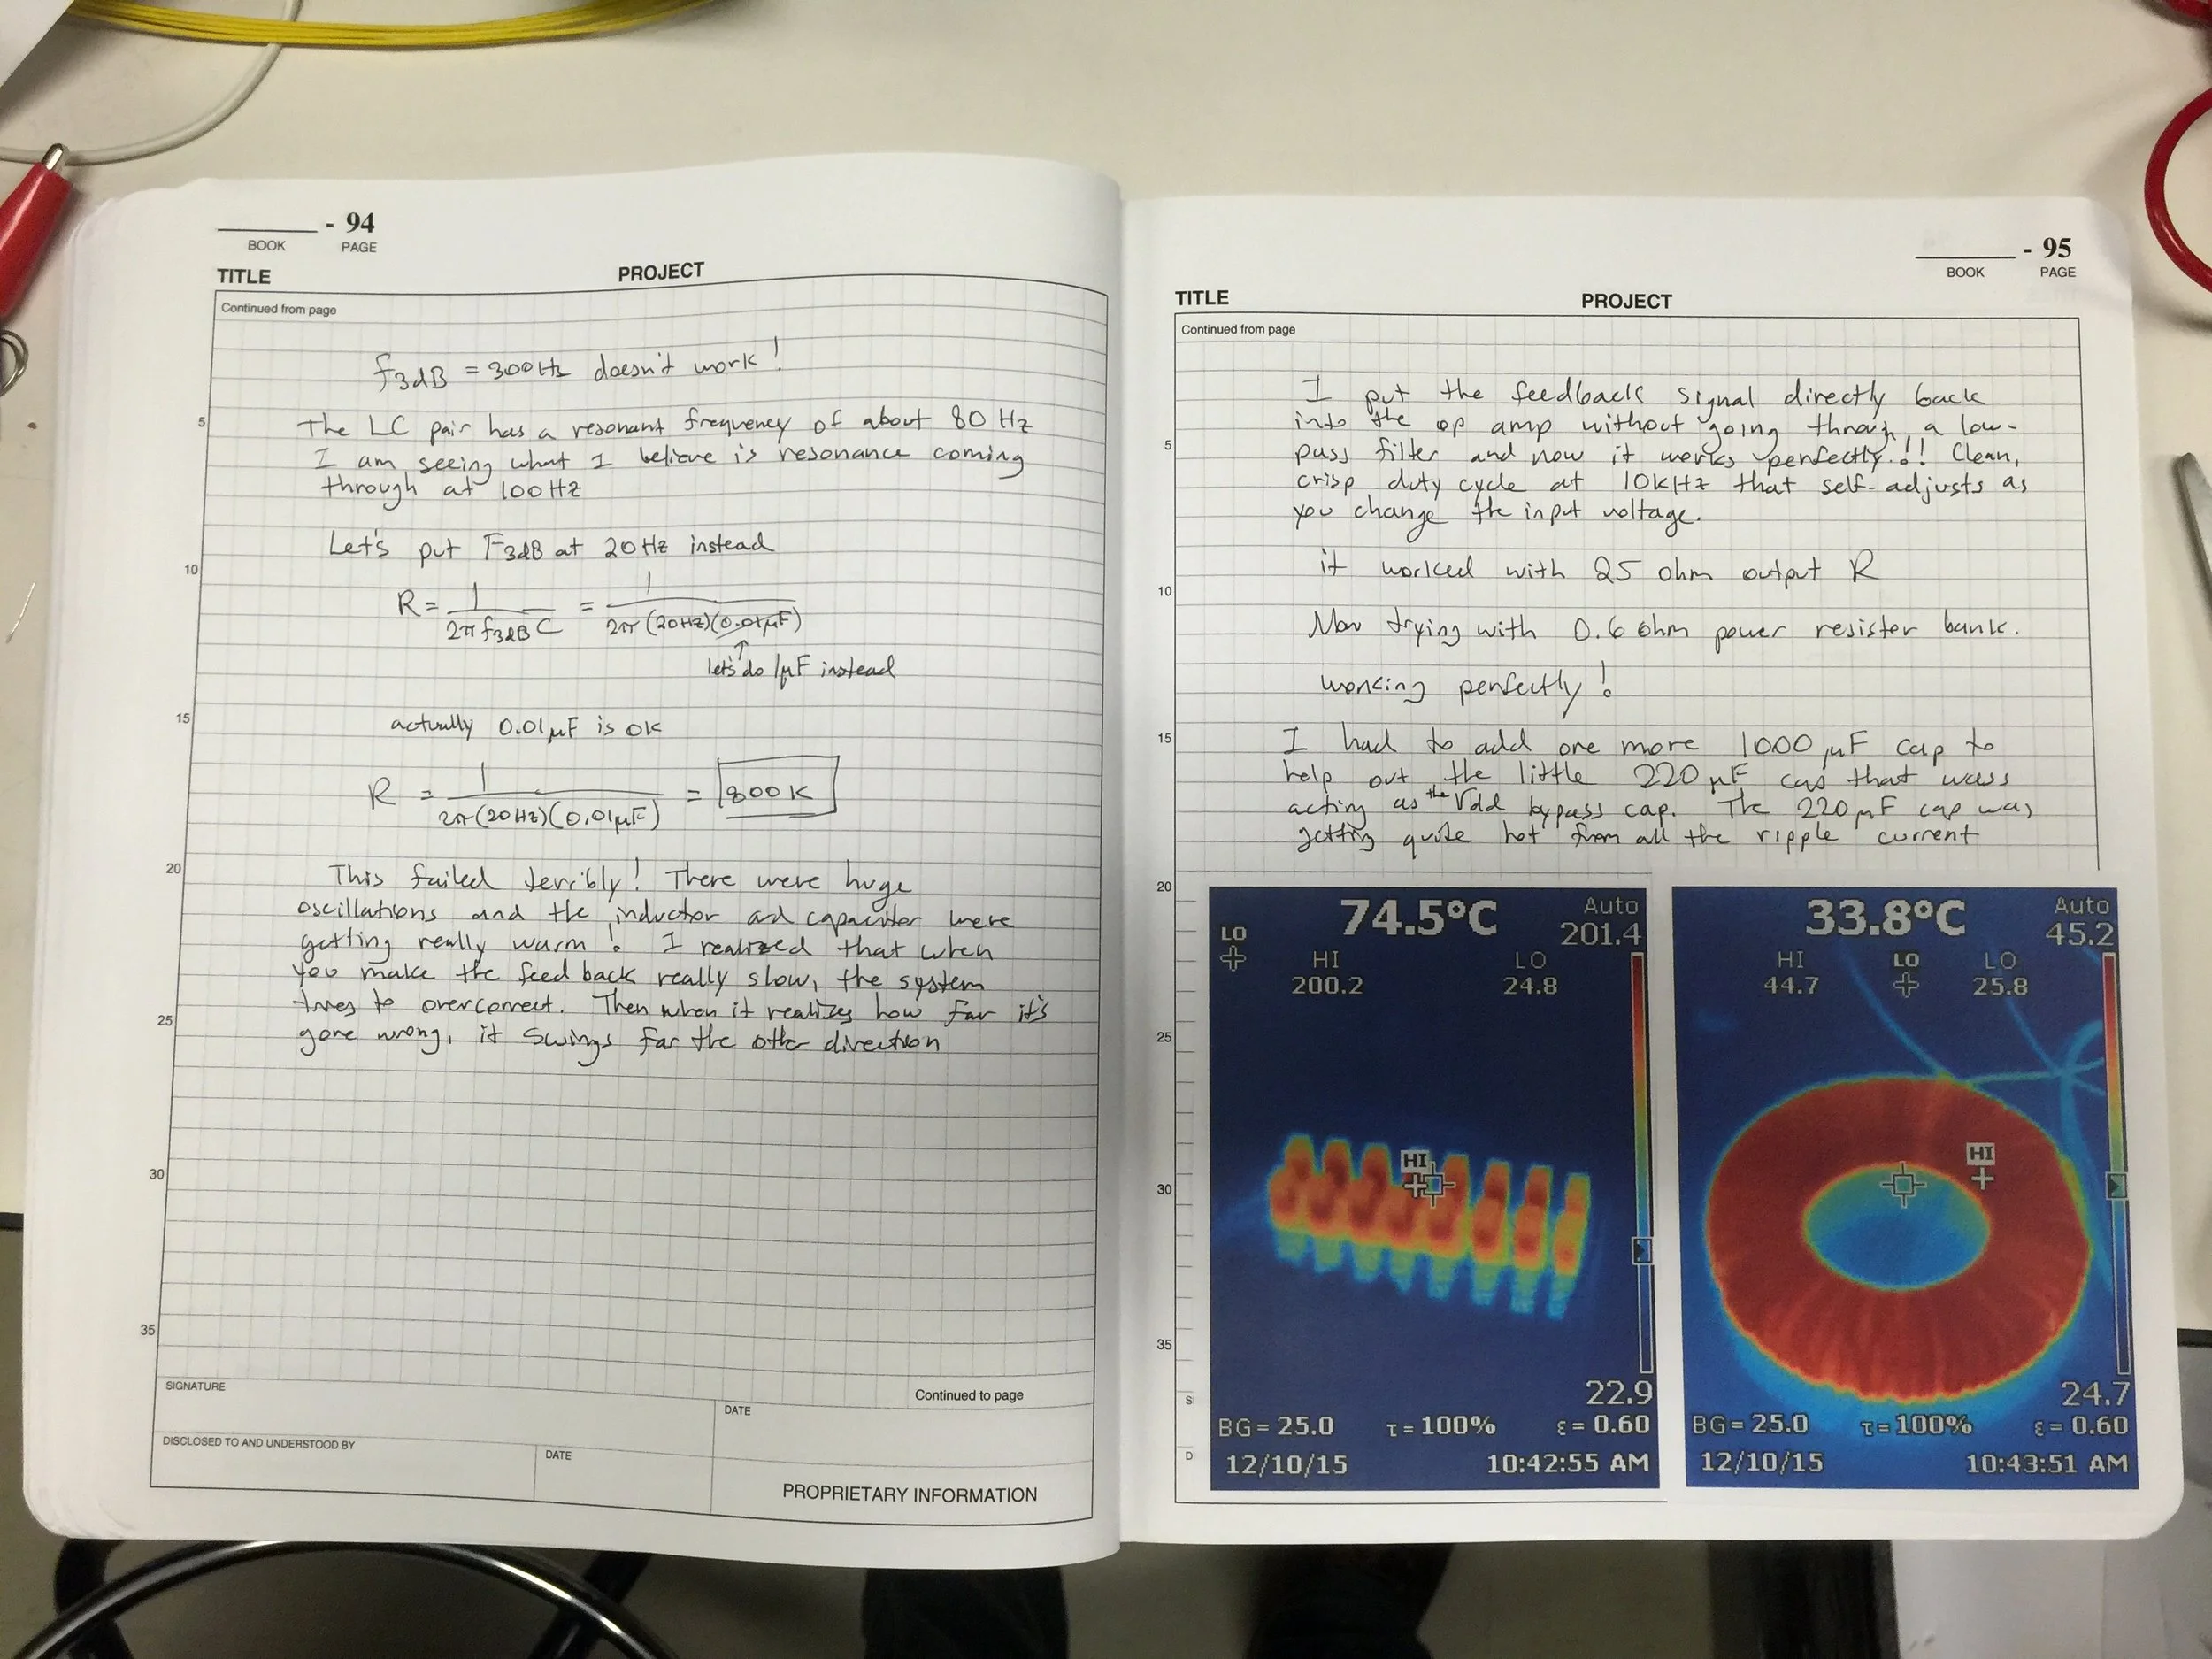 - 94
BOOK PAGE
TITLE PROJECT
Continued from page
f3dB = 300Hz doesn't work!
The LC pair has a resonant frequency of about 80 Hz
I am seeing what I believe is resonance coming
through at 100Hz
Let's put F3dB at 20Hz instead
R = 1/(2π f3dB C) = 1/(2π (20Hz)(0.01μF))
↑
let's do 1μF instead
actually 0.01μF is OK
R = 1/(2π(20Hz)(0.01μF)) = 800K
This failed terribly! There were huge
oscillations and the inductor and capacitor were
getting really warm! I realized that when
you make the feed back really slow, the system
tries to overcorrect. Then when it realizes how far it's
gone wrong, it swings far the other direction
5
10
15
20
25
30
35
SIGNATURE
Continued to page
DATE
DISCLOSED TO AND UNDERSTOOD BY
DATE
PROPRIETARY INFORMATION
- 95
BOOK PAGE
TITLE PROJECT
Continued from page
I put the feedback signal directly back
into the op amp without going through a low-
pass filter and now it works perfectly!!! Clean,
crisp duty cycle at 10KHz that self-adjusts as
you change the input voltage.
it worked with 25 ohm output R
Now trying with 0.6 ohm power resister bank.
working perfectly!
I had to add one more 1000 μF cap to
help out the little 220 μF cap that was
acting as the Vdd bypass cap. The 220 μF cap was
getting quite hot from all the ripple current
5
10
15
20
25
30
35
S
D
74.5°C Auto
LO 201.4
HI LO
200.2 24.8
HI
22.9
BG= 25.0 τ= 100% ε= 0.60
12/10/15 10:42:55 AM
33.8°C Auto
45.2
HI LO LO
44.7 25.8
HI
24.7
BG= 25.0 τ= 100% ε= 0.60
12/10/15 10:43:51 AM